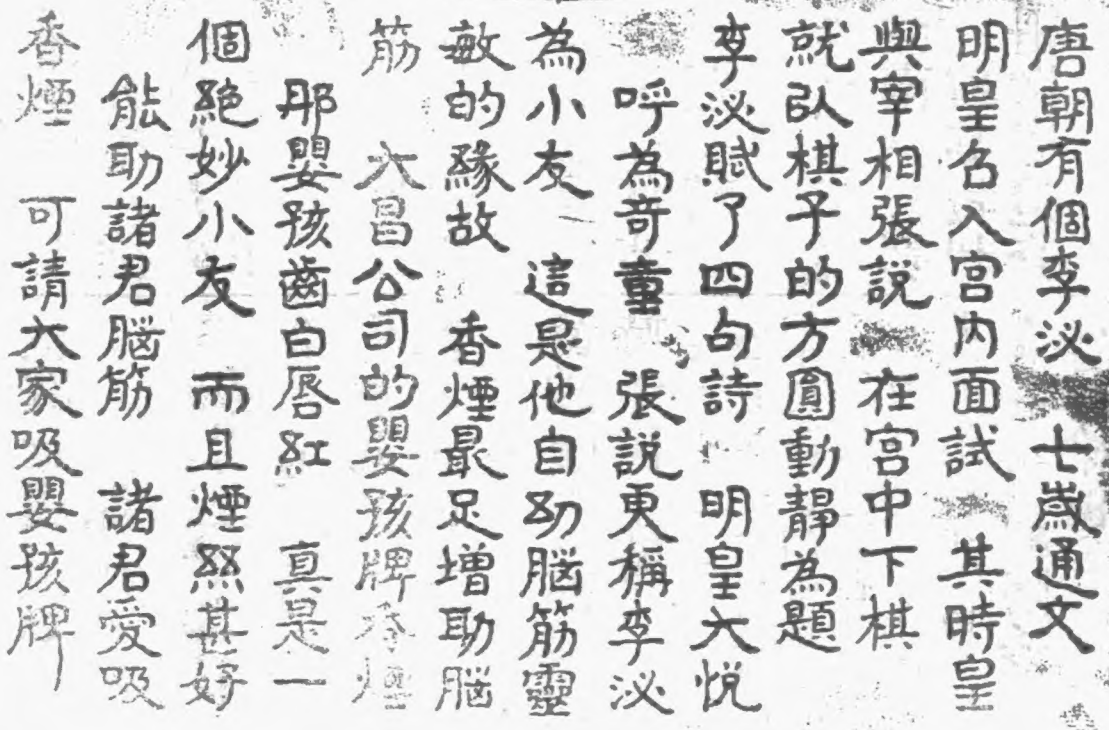 唐朝有個李泌　七歲通文
明皇召入宮內面試　其時皇
與宰相張說　在宮中下棋
就以棋子的方圓動靜為題
李泌賦了四句詩　明皇大悅
呼為奇童　張說更稱李泌
為小友　這是他自幼腦筋靈
敏的緣故　香煙最足增助腦
筋　大昌公司的嬰孩牌香煙
那嬰孩齒白唇紅　真是一
個絕妙小友　而且煙絲甚好
能助諸君腦筋　諸君愛吸
香煙　可請大家吸嬰孩牌